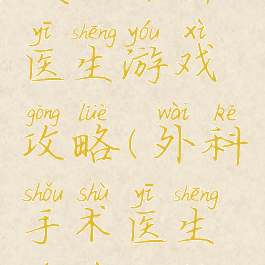 yī shēng yóu xì
医生游戏
gōng lüè wài kē
攻略(外科
shǒu shù yī shēng
手术医生